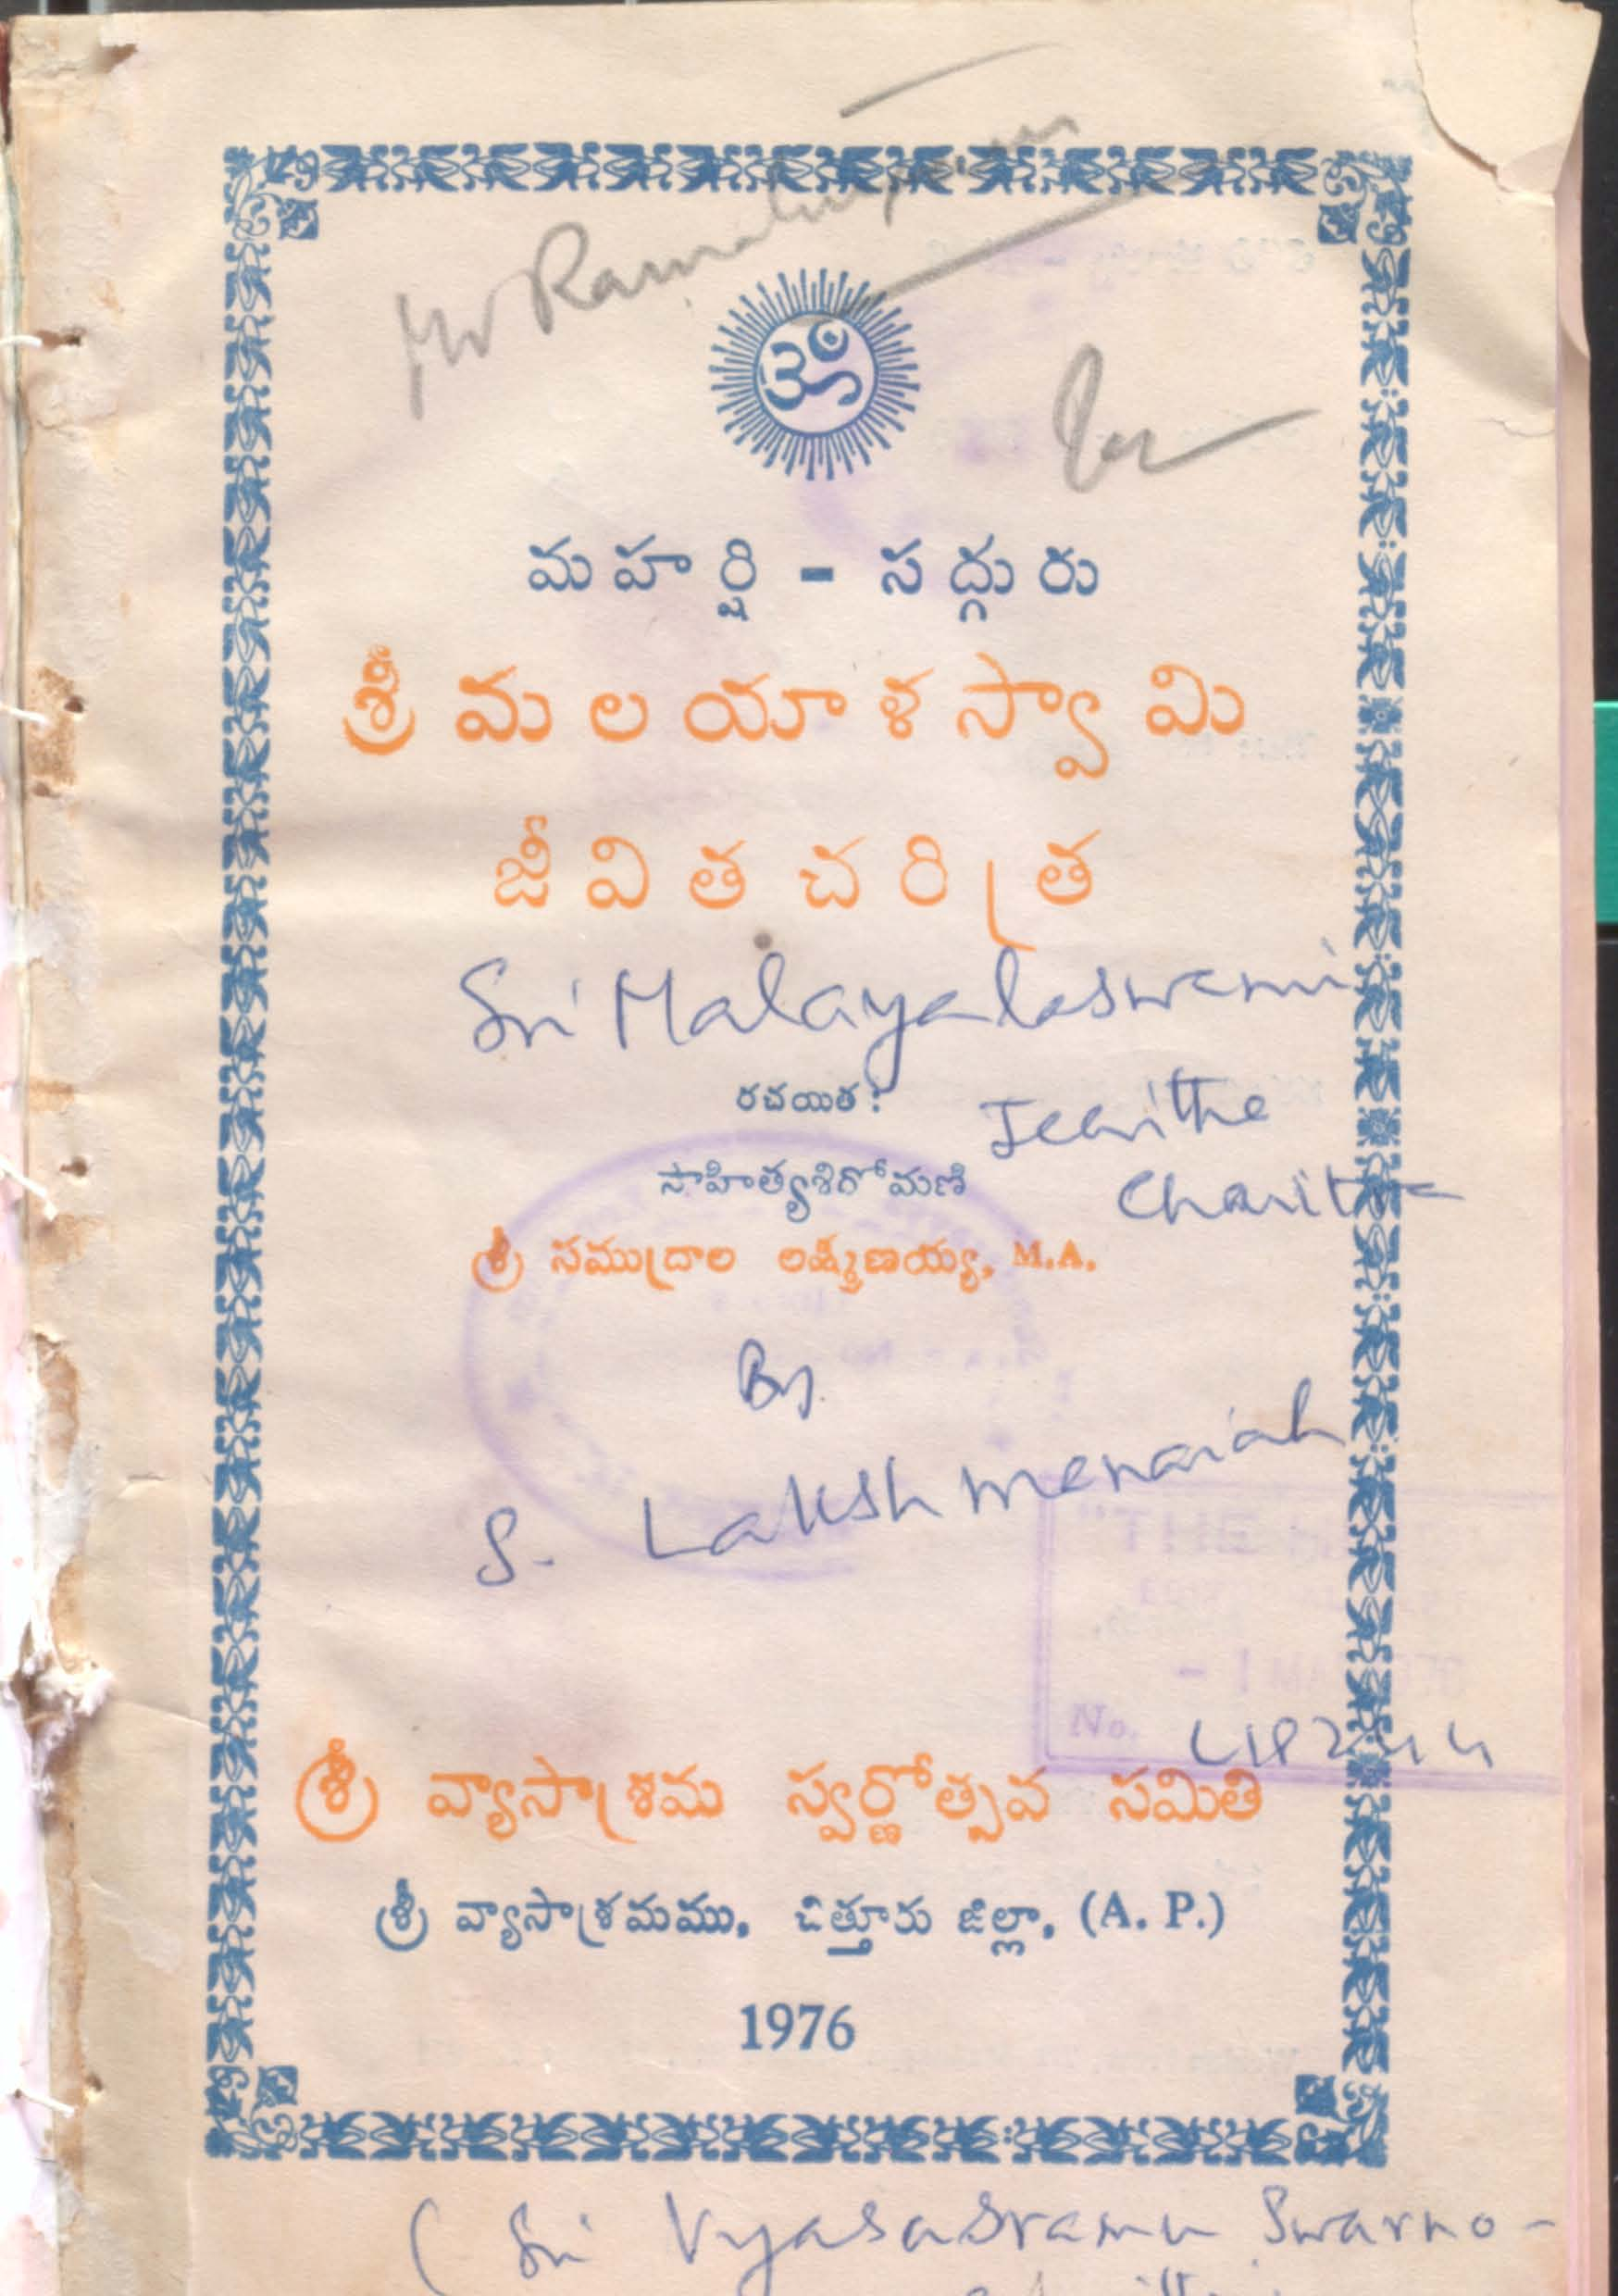 ॐ
మహర్షి - సద్గురు
శ్రీ మలయాళస్వామి
జీవితచరిత్ర
Sri Malayalaswami
రచయిత :
Jeevitha
Charitra
సాహిత్యశిరోమణి
శ్రీ సముద్రాల లక్ష్మణయ్య, M.A.
By
S. Lakshmenaiah
No.
శ్రీ వ్యాసాశ్రమ స్వర్ణోత్సవ సమితి
శ్రీ వ్యాసాశ్రమము, చిత్తూరు జిల్లా, (A. P.)
1976
( Sri Vyasasrama Swarno-